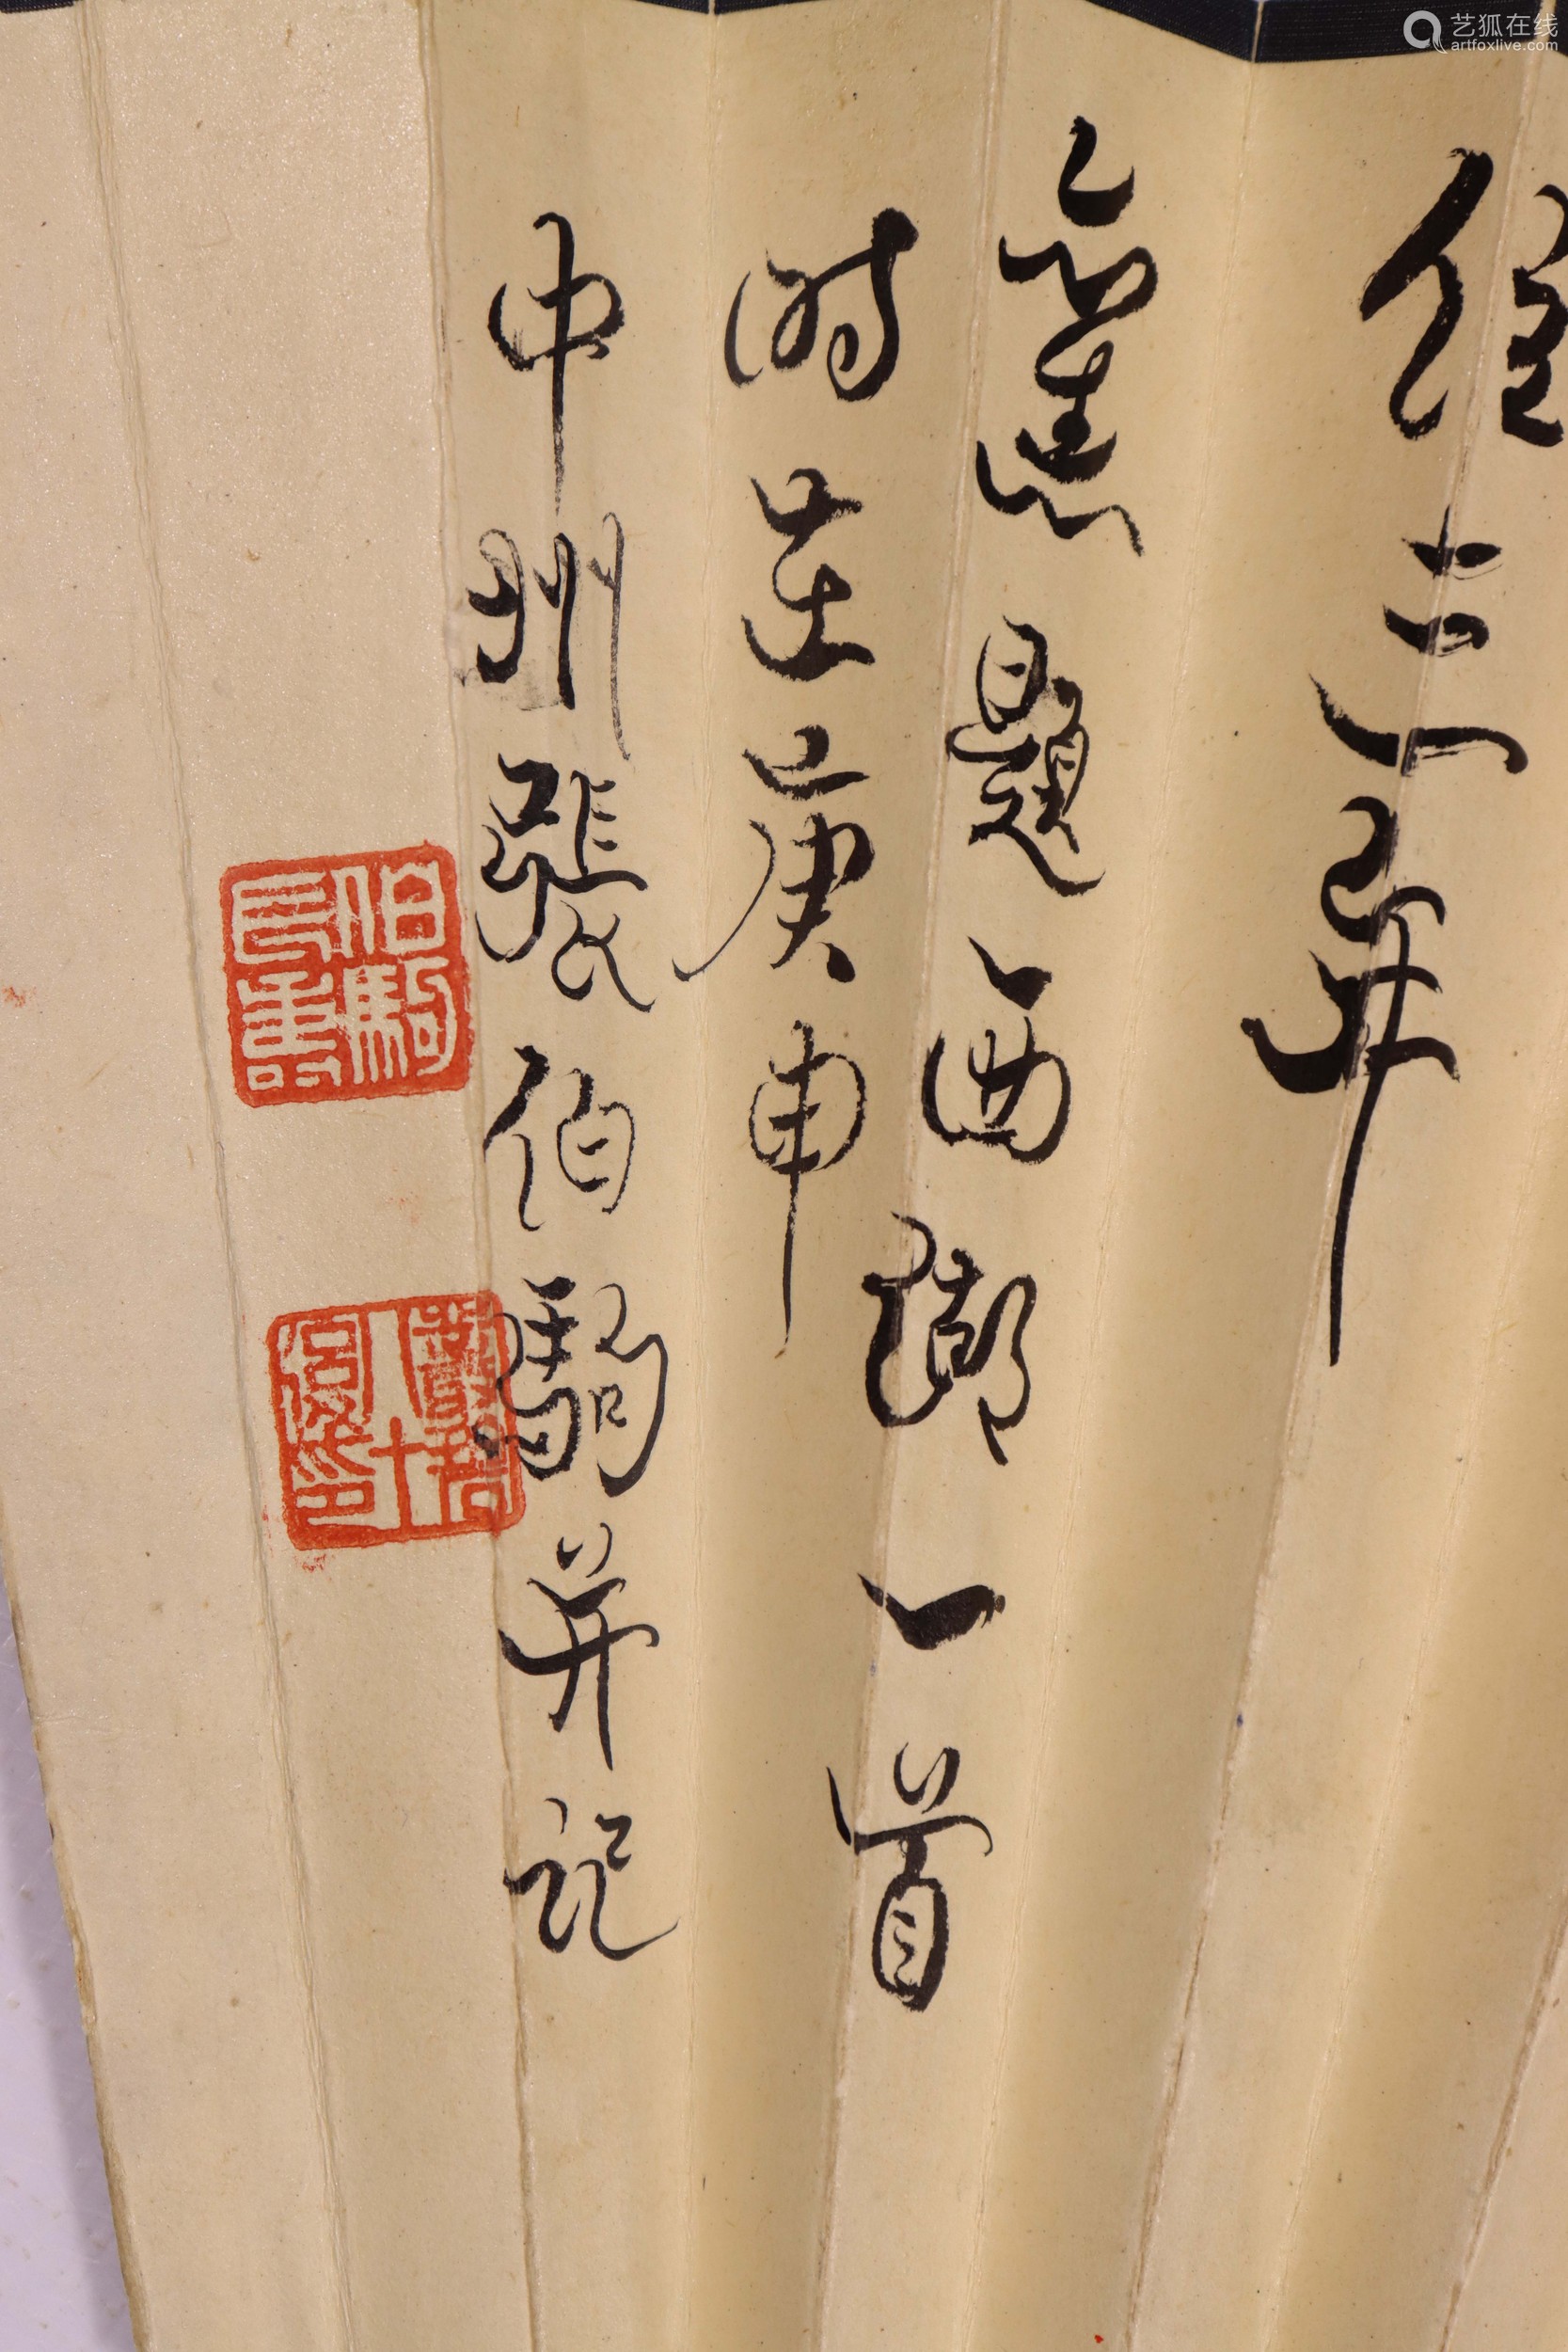 艺狐在线
artfoxlive.com
住南屏
題西湖一首
時在庚申
中州張伯駒并記
伯駒長壽
叢碧八十後印